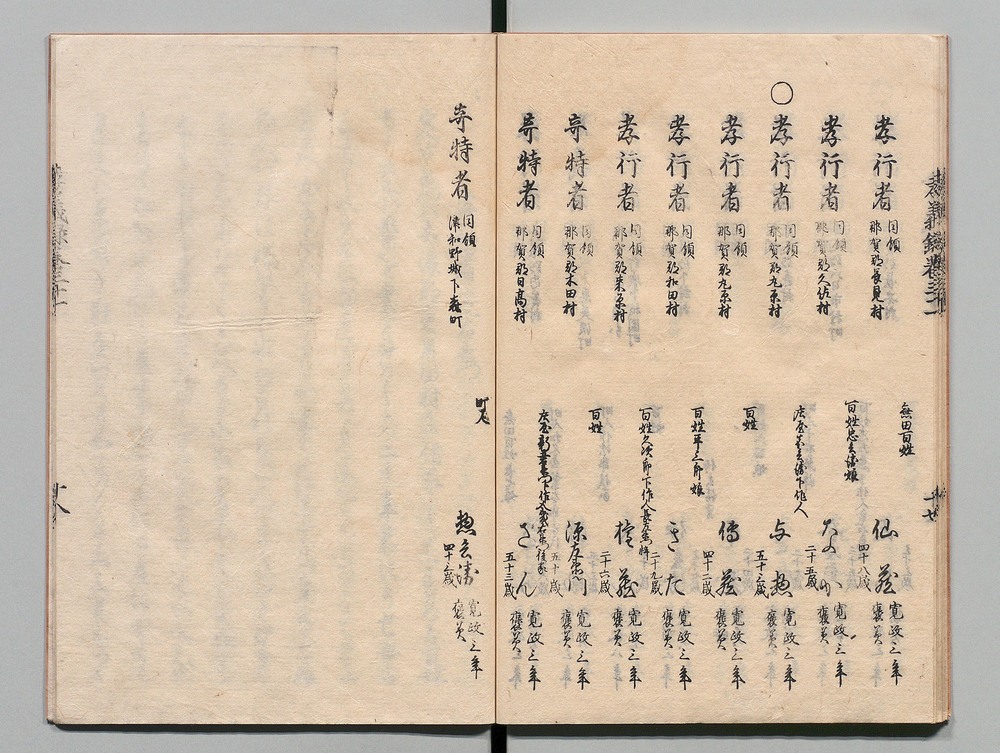 孝義録巻三十一
孝行者 同領 那賀郡長見村 無田百姓 仙蔵 四十八歳 寛政三年 褒美
孝行者 同領 那賀郡久佐村 百姓忠兵衛娘 なか 二十五歳 寛政三年 褒美
○
孝行者 同領 那賀郡丸原村 庄屋 下作人 与惣 五十三歳 寛政三年 褒美
孝行者 同領 那賀郡丸原村 百姓 傳蔵 四十二歳 寛政三年 褒美
孝行者 同領 那賀郡和田村 百姓平三郎娘 きた 二十九歳 寛政三年 褒美
孝行者 同領 那賀郡来原村 百姓久次郎下作人 蔵 二十六歳 寛政三年 褒美
奇特者 同領 那賀郡木田村 百姓 源左衛門 五十歳 寛政三年 褒美
奇特者 同領 那賀郡日高村 庄屋 下作人 後家 さん 五十三歳 寛政三年 褒美
奇特者 同領 津和野城下森町 町人 惣兵衛 四十六歳 寛政三年 褒美